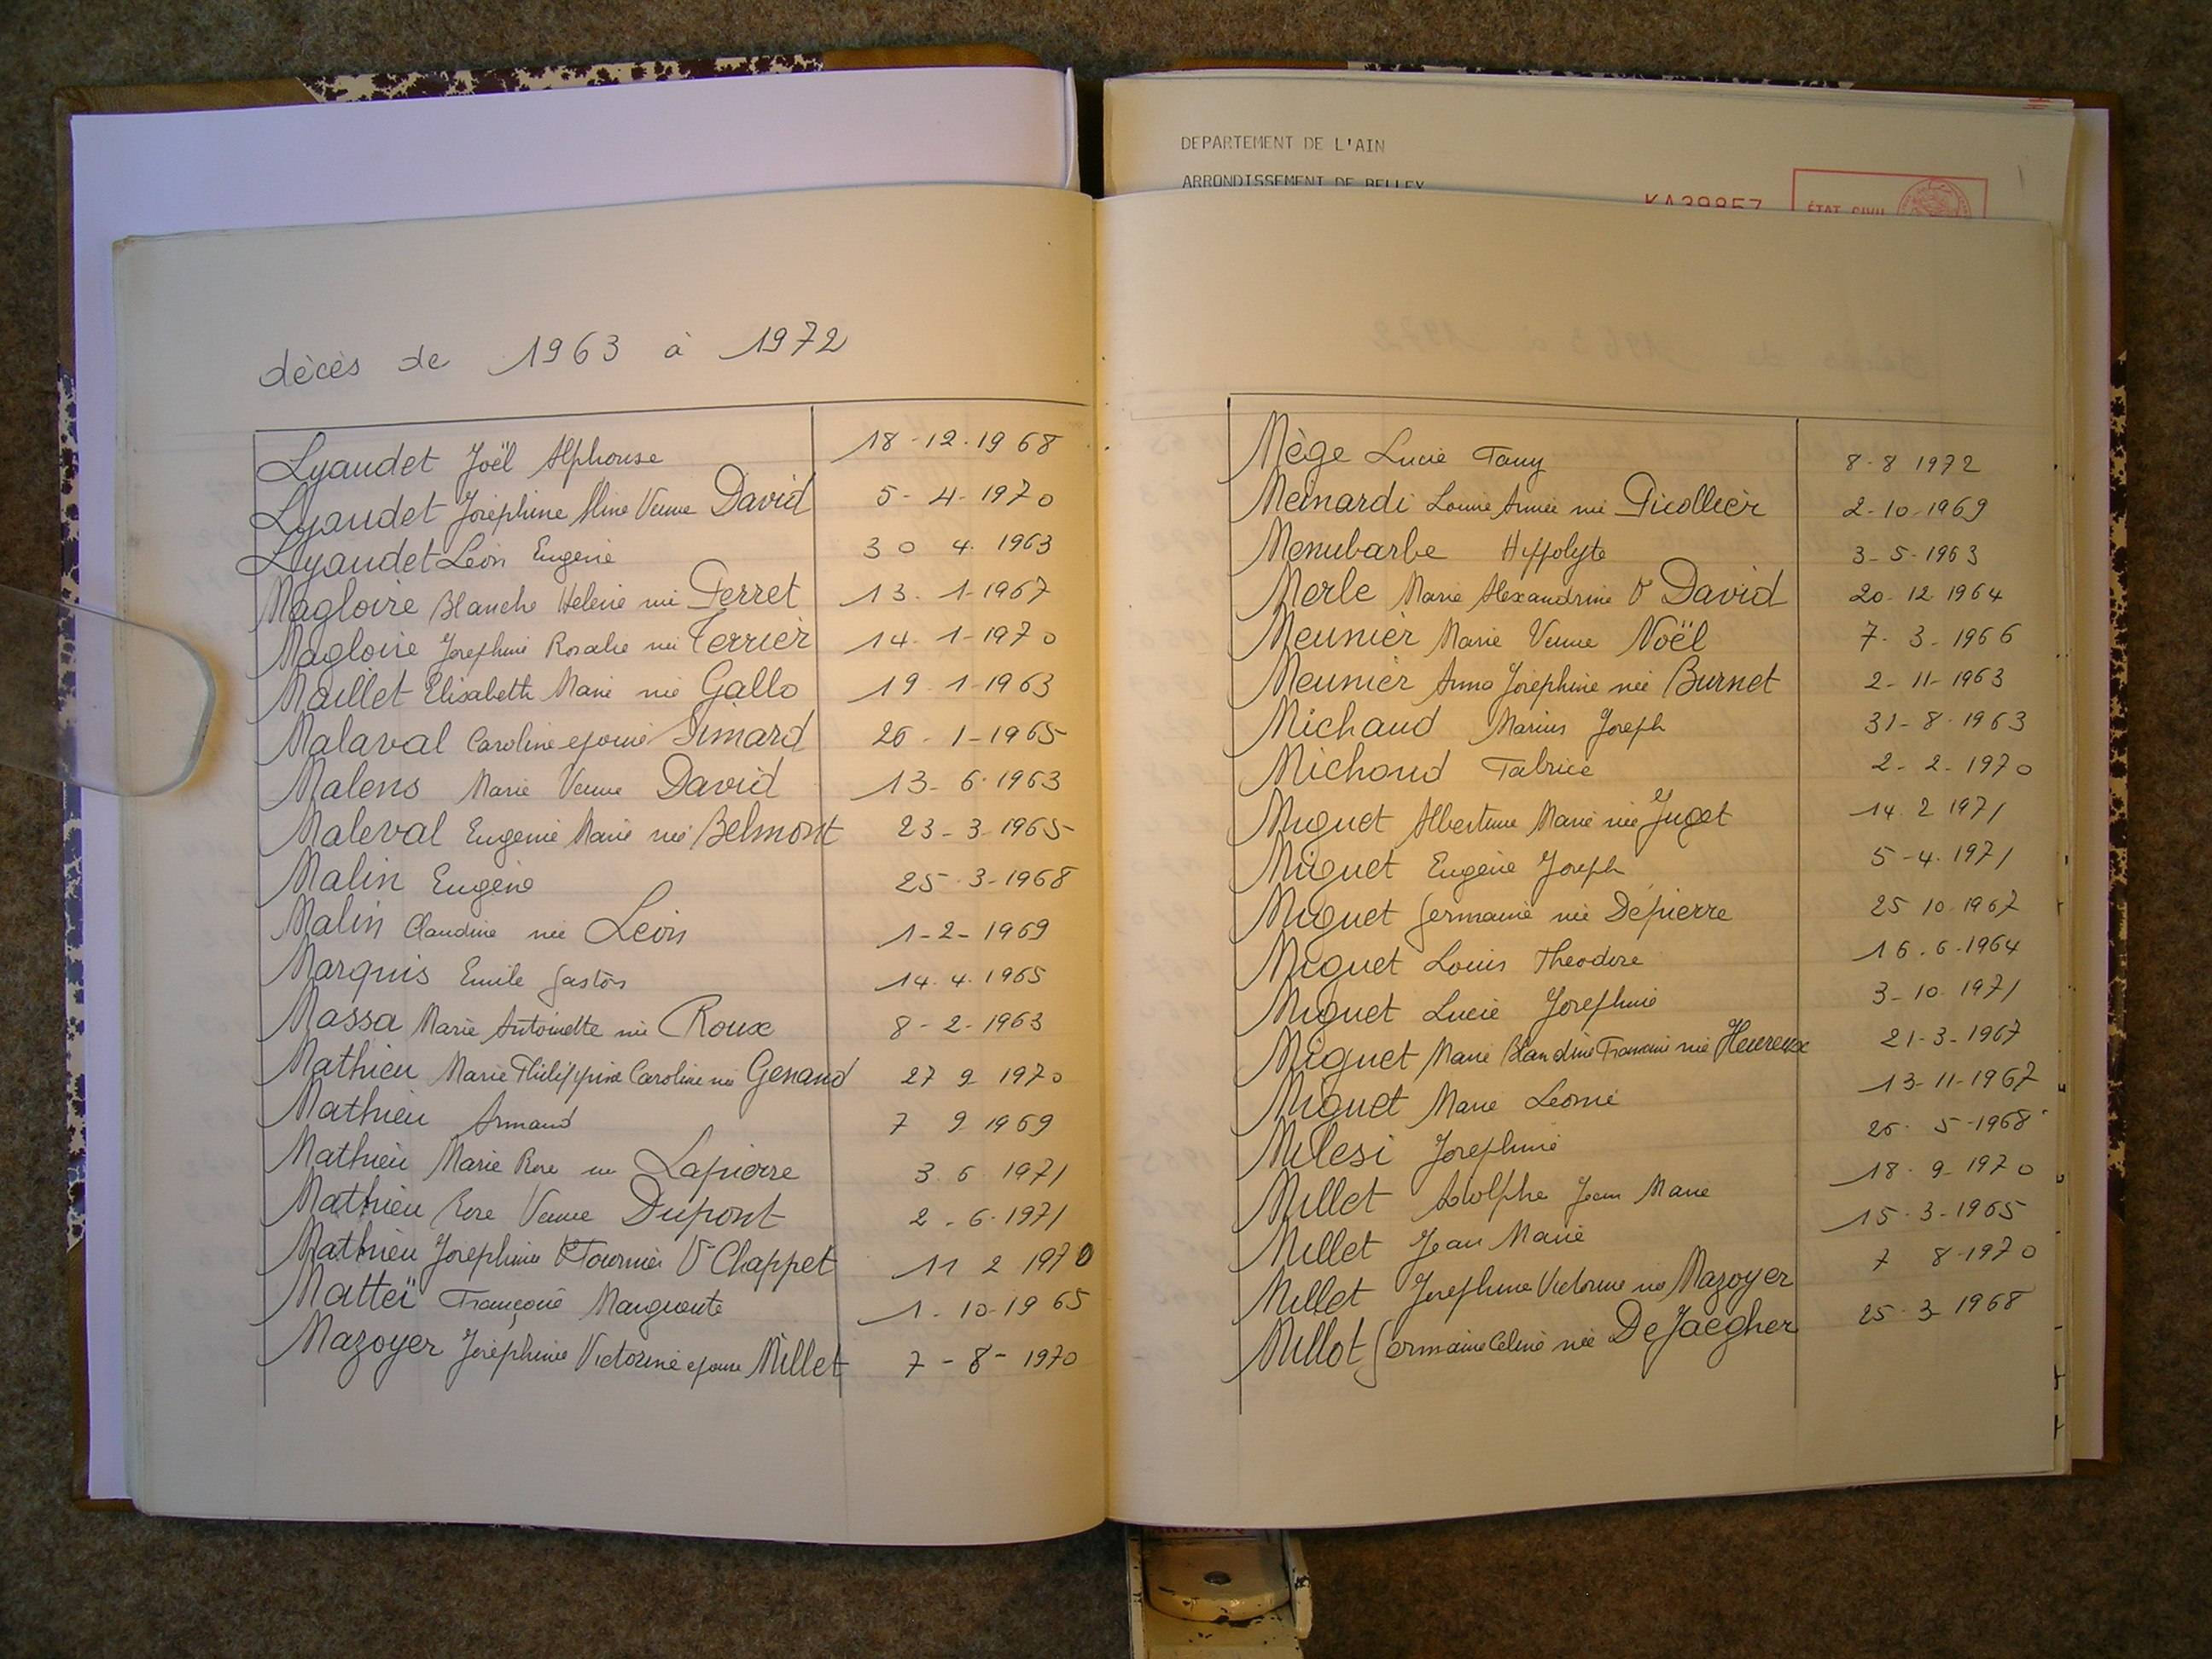 DEPARTEMENT DE L'AIN
ARRONDISSEMENT DE BELLEY
KA39857
ÉTAT CIVIL
décès de 1963 à 1972
Lyaudet Joël Alphonse 18-12.1968
Lyaudet Joséphine Aline Veuve David 5-4-1970
Lyaudet Léon Eugène 30 4. 1963
Magloire Blanche Helène née Perret 13. 1-1967
Magloire Josephine Rosalie née Terrier 14. 1-1970
Maillet Elisabeth Marie née Gallo 19-1-1963
Malaval Caroline epouse Simard 26-1-1965
Malens Marie Veuve David 13-6-1963
Maleval Eugenie Marie née Belmont 23-3-1965
Malin Eugène 25-3-1968
Malin Claudine née Léon 1-2-1969
Marquis Emile Gaston 14.4.1965
Massa Marie Antoinette née Roux 8-2-1963
Mathieu Marie Philippine Caroline née Genand 27 9 1970
Mathieu Armand 7 9 1969
Mathieu Marie Rose née Lapierre 3 6 1971
Mathieu Rose Veuve Dupont 2-6-1971
Mathieu Josephine Fournier V Chappet 11 2 1970
Matteï Françoise Marguerite 1-10-1965
Mazoyer Joséphine Victorine epouse Millet 7-8-1970
Mège Lucie Fany 8-8 1972
Meinardi Louise Aimée née Picollier 2-10-1969
Menubarbe Hyppolyte 3-5-1963
Merle Marie Alexandrine V David 20-12 1964
Meunier Marie Veuve Noël 7-3-1966
Meunier Anna Joséphine née Burnet 2-11-1963
Michaud Marius Joseph 31-8-1963
Michoud Fabrice 2-2-1970
Miguet Albertine Marie née Juget 14 2 1971
Miguet Eugène Joseph 5-4.1971
Miguet Germaine née Depierre 25 10.1967
Miguet Louis Theodore 16.6.1964
Miguet Lucie Josephine 3-10 1971
Miguet Marie Blandine Francine née Heureux 21-3-1967
Miguet Marie Leonie 13-11-1967
Milesi Josephine 26-5-1968
Millet Adolphe Jean Marie 18-9-1970
Millet Jean Marie 15-3-1965
Millet Josephine Victorine née Mazoyer 7 8-1970
Millot Germaine Celine née DeJaegher 25-3 1968